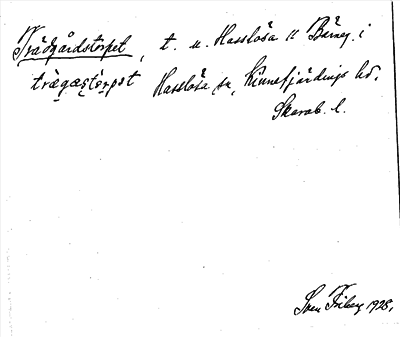 Trädgårdstorpet, t. u. Hasslösa 11 Bäreg. i
trägastorpet Hasslösa sn, Kinnefjärdings hd.
Skarab. l.
Sven Friberg 1928.